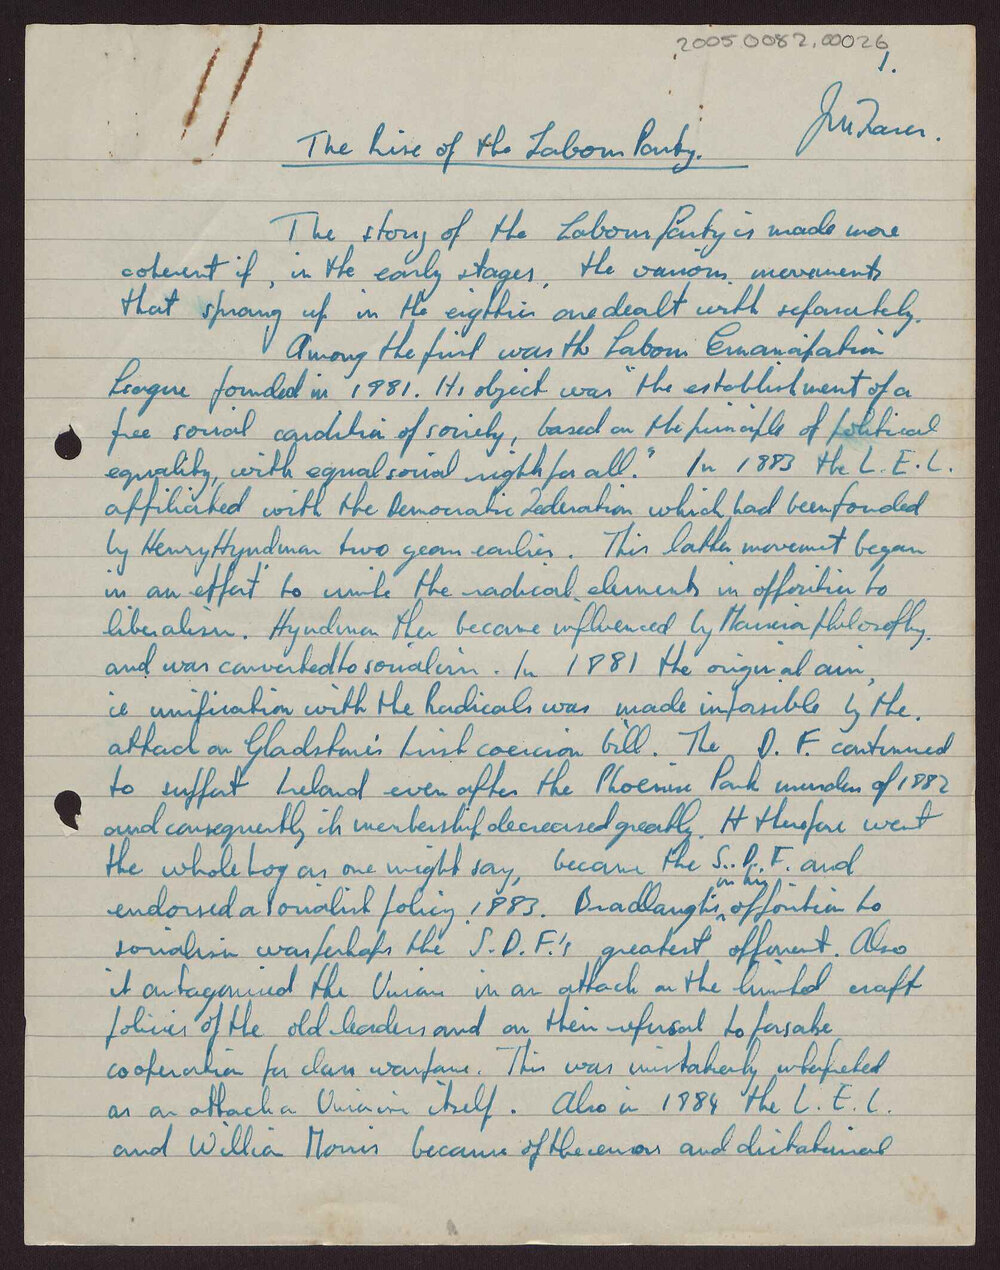 2005.0082.00026
1.
J M Fraser.
The Rise of the Labour Party.
The story of the Labour Party is made more
coherent if, in the early stages, the various movements
that sprang up in the eighties are dealt with separately.
Among the first was the Labour Emancipation
League founded in 1881. Its object was "the establishment of a
free social condition of society, based on the principle of political
equality, with equal social rights for all." In 1883 the L.E.L.
affiliated with the Democratic Federation which had been founded
by Henry Hyndman two years earlier. This latter movement began
in an effort to unite the radical elements in opposition to
liberalism. Hyndman then became influenced by Marxian Philosophy,
and was converted to socialism. In 1881 the original aim,
ie unification with the Radicals was made impossible by the
attack on Gladstone's Irish coercion bill. The D. F. continued
to support Ireland even after the Phoenix Park murders of 1882
and consequently its membership decreased greatly. It therefore went
the whole hog as one might say, became the S.D.F. and
endorsed a socialist policy 1883. Bradlaugh's in his opposition to
socialism was perhaps the S.D.F.'s greatest opponent. Also
it antagonised the Unions in an attack on the limited craft
policies of the old leaders and on their refusal to forsake
cooperation for class warfare. This was mistakenly interpreted
as an attack on Unionism itself. Also in 1884 the L.E.L.
and William Morris because of the and dictatorial